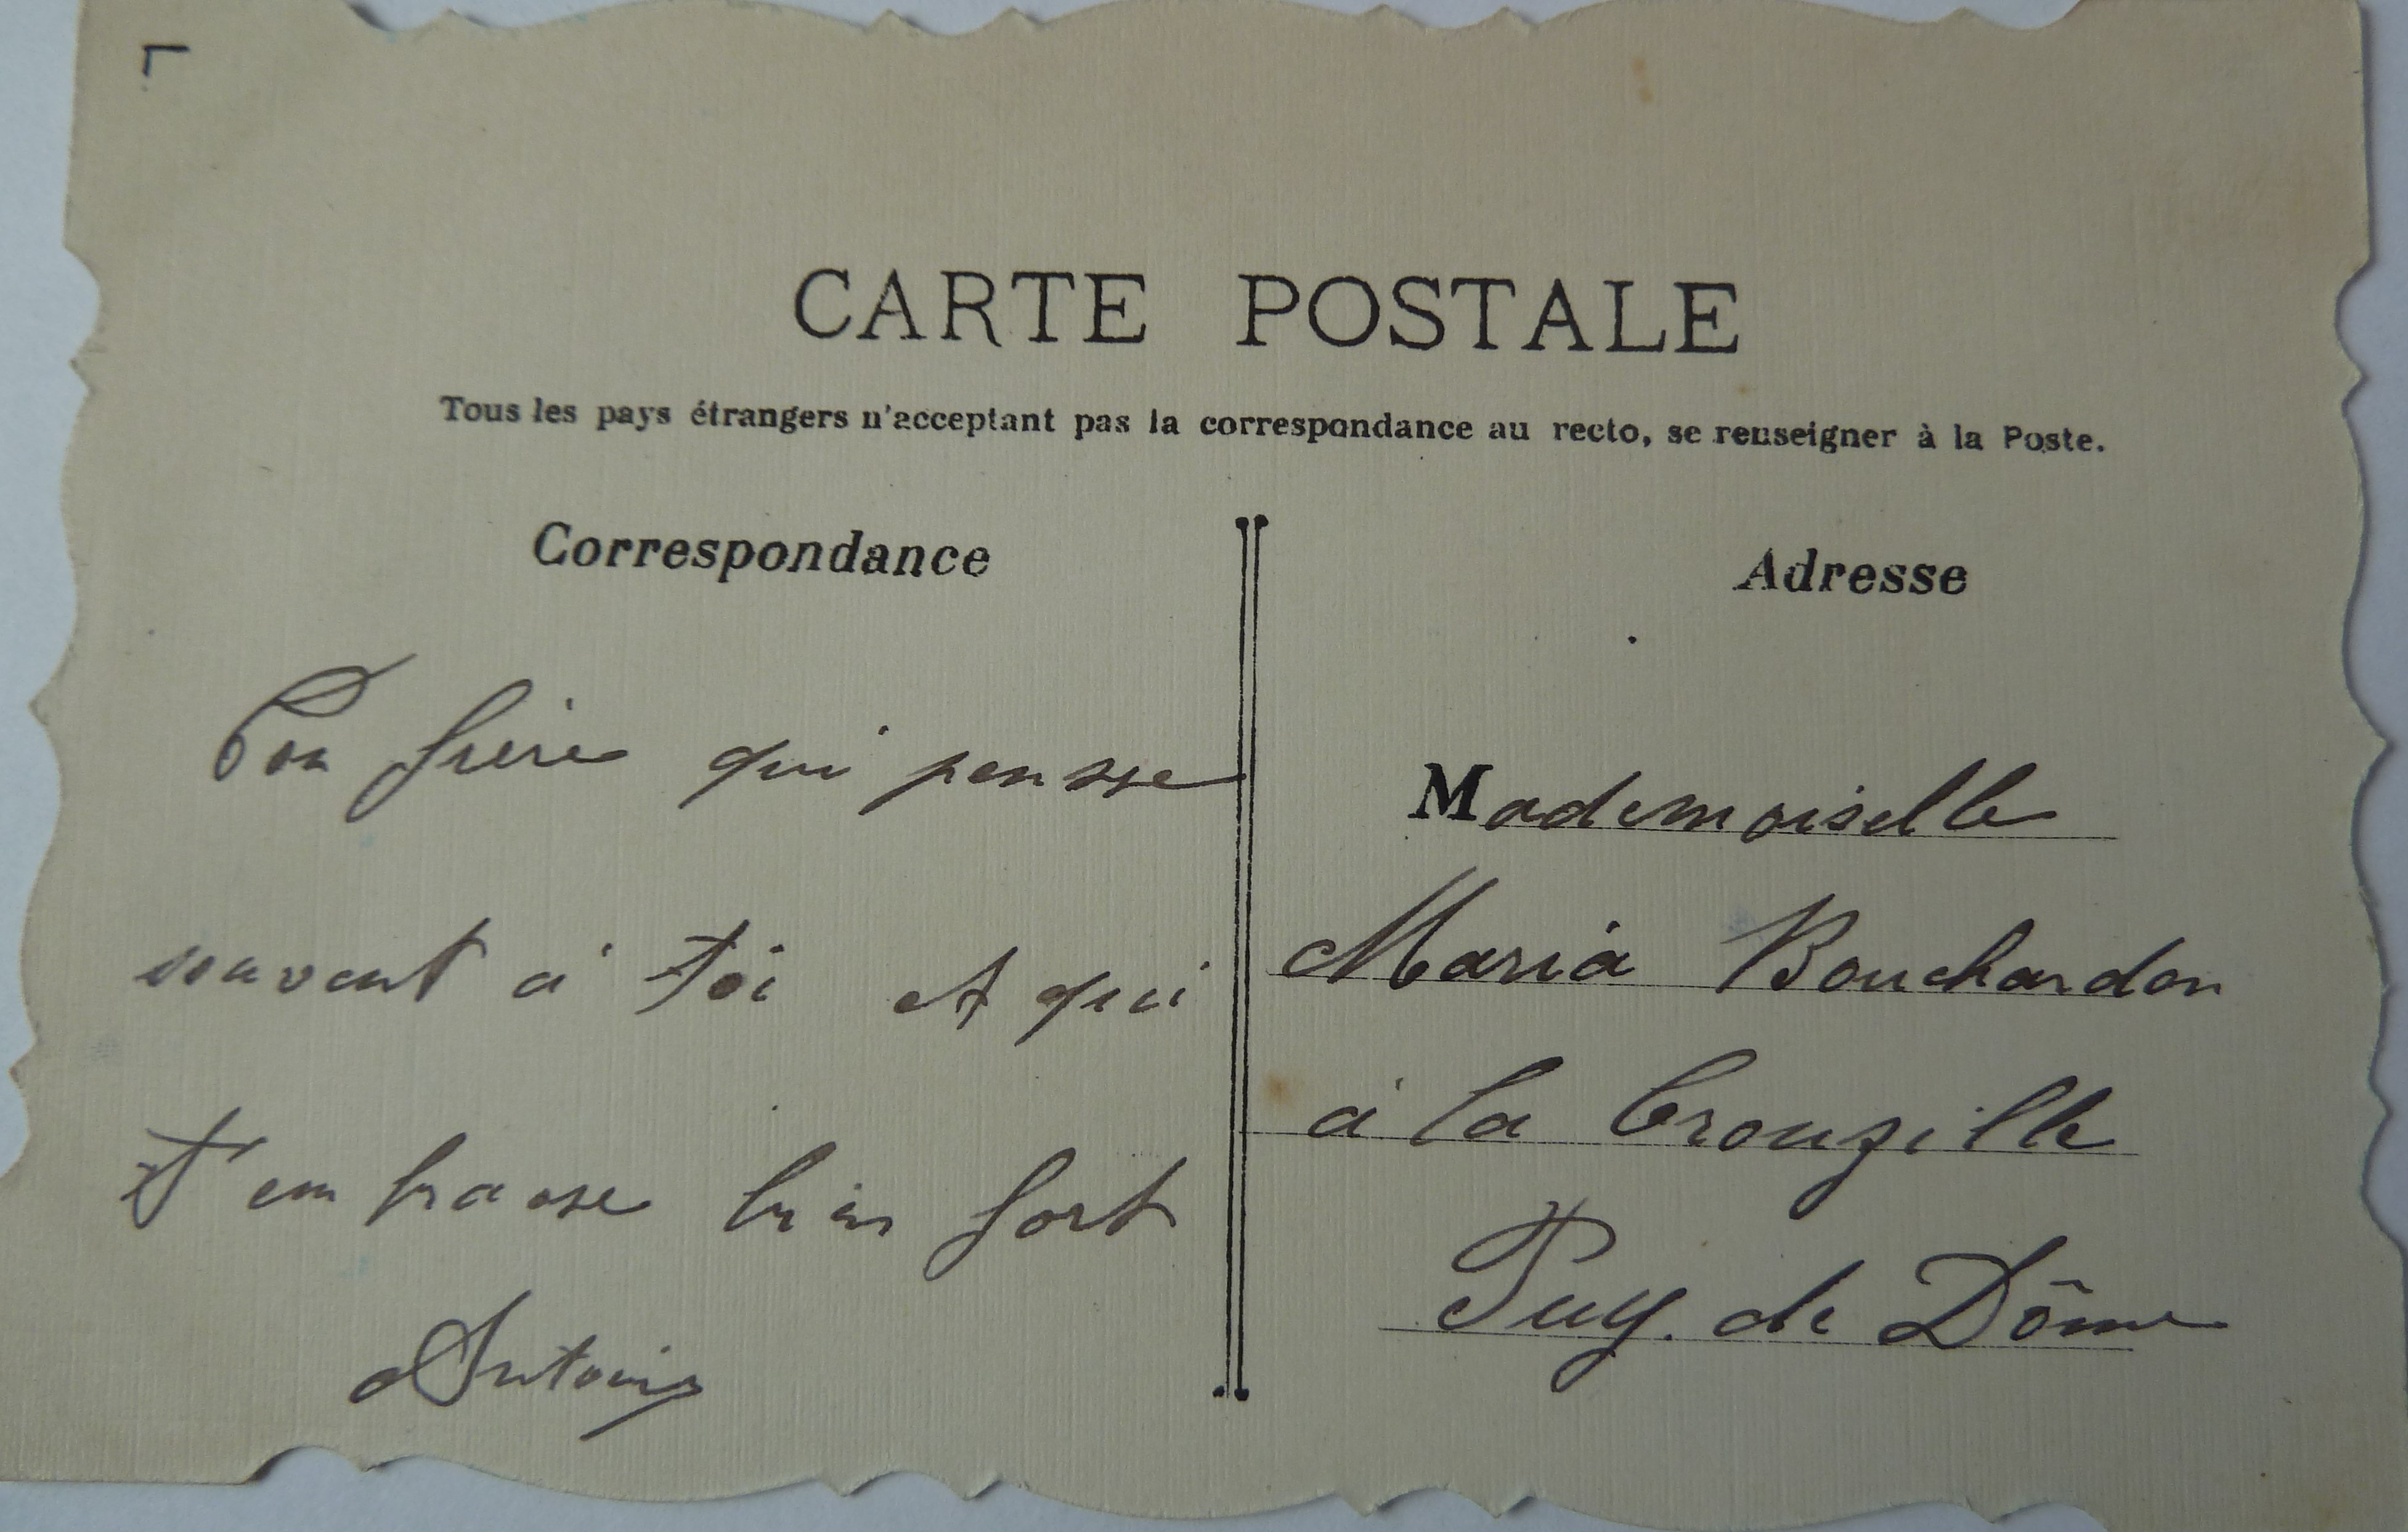 CARTE POSTALE
Tous les pays étrangers n'acceptant pas la correspondance au recto, se renseigner à la Poste.
Correspondance
Ton frère qui pensse
souvent à toi et qui
t'embrasse bien fort
Antoine
Adresse
Mademoiselle
Maria Bouchardon
à la Crouzille
Puy. de Dôme